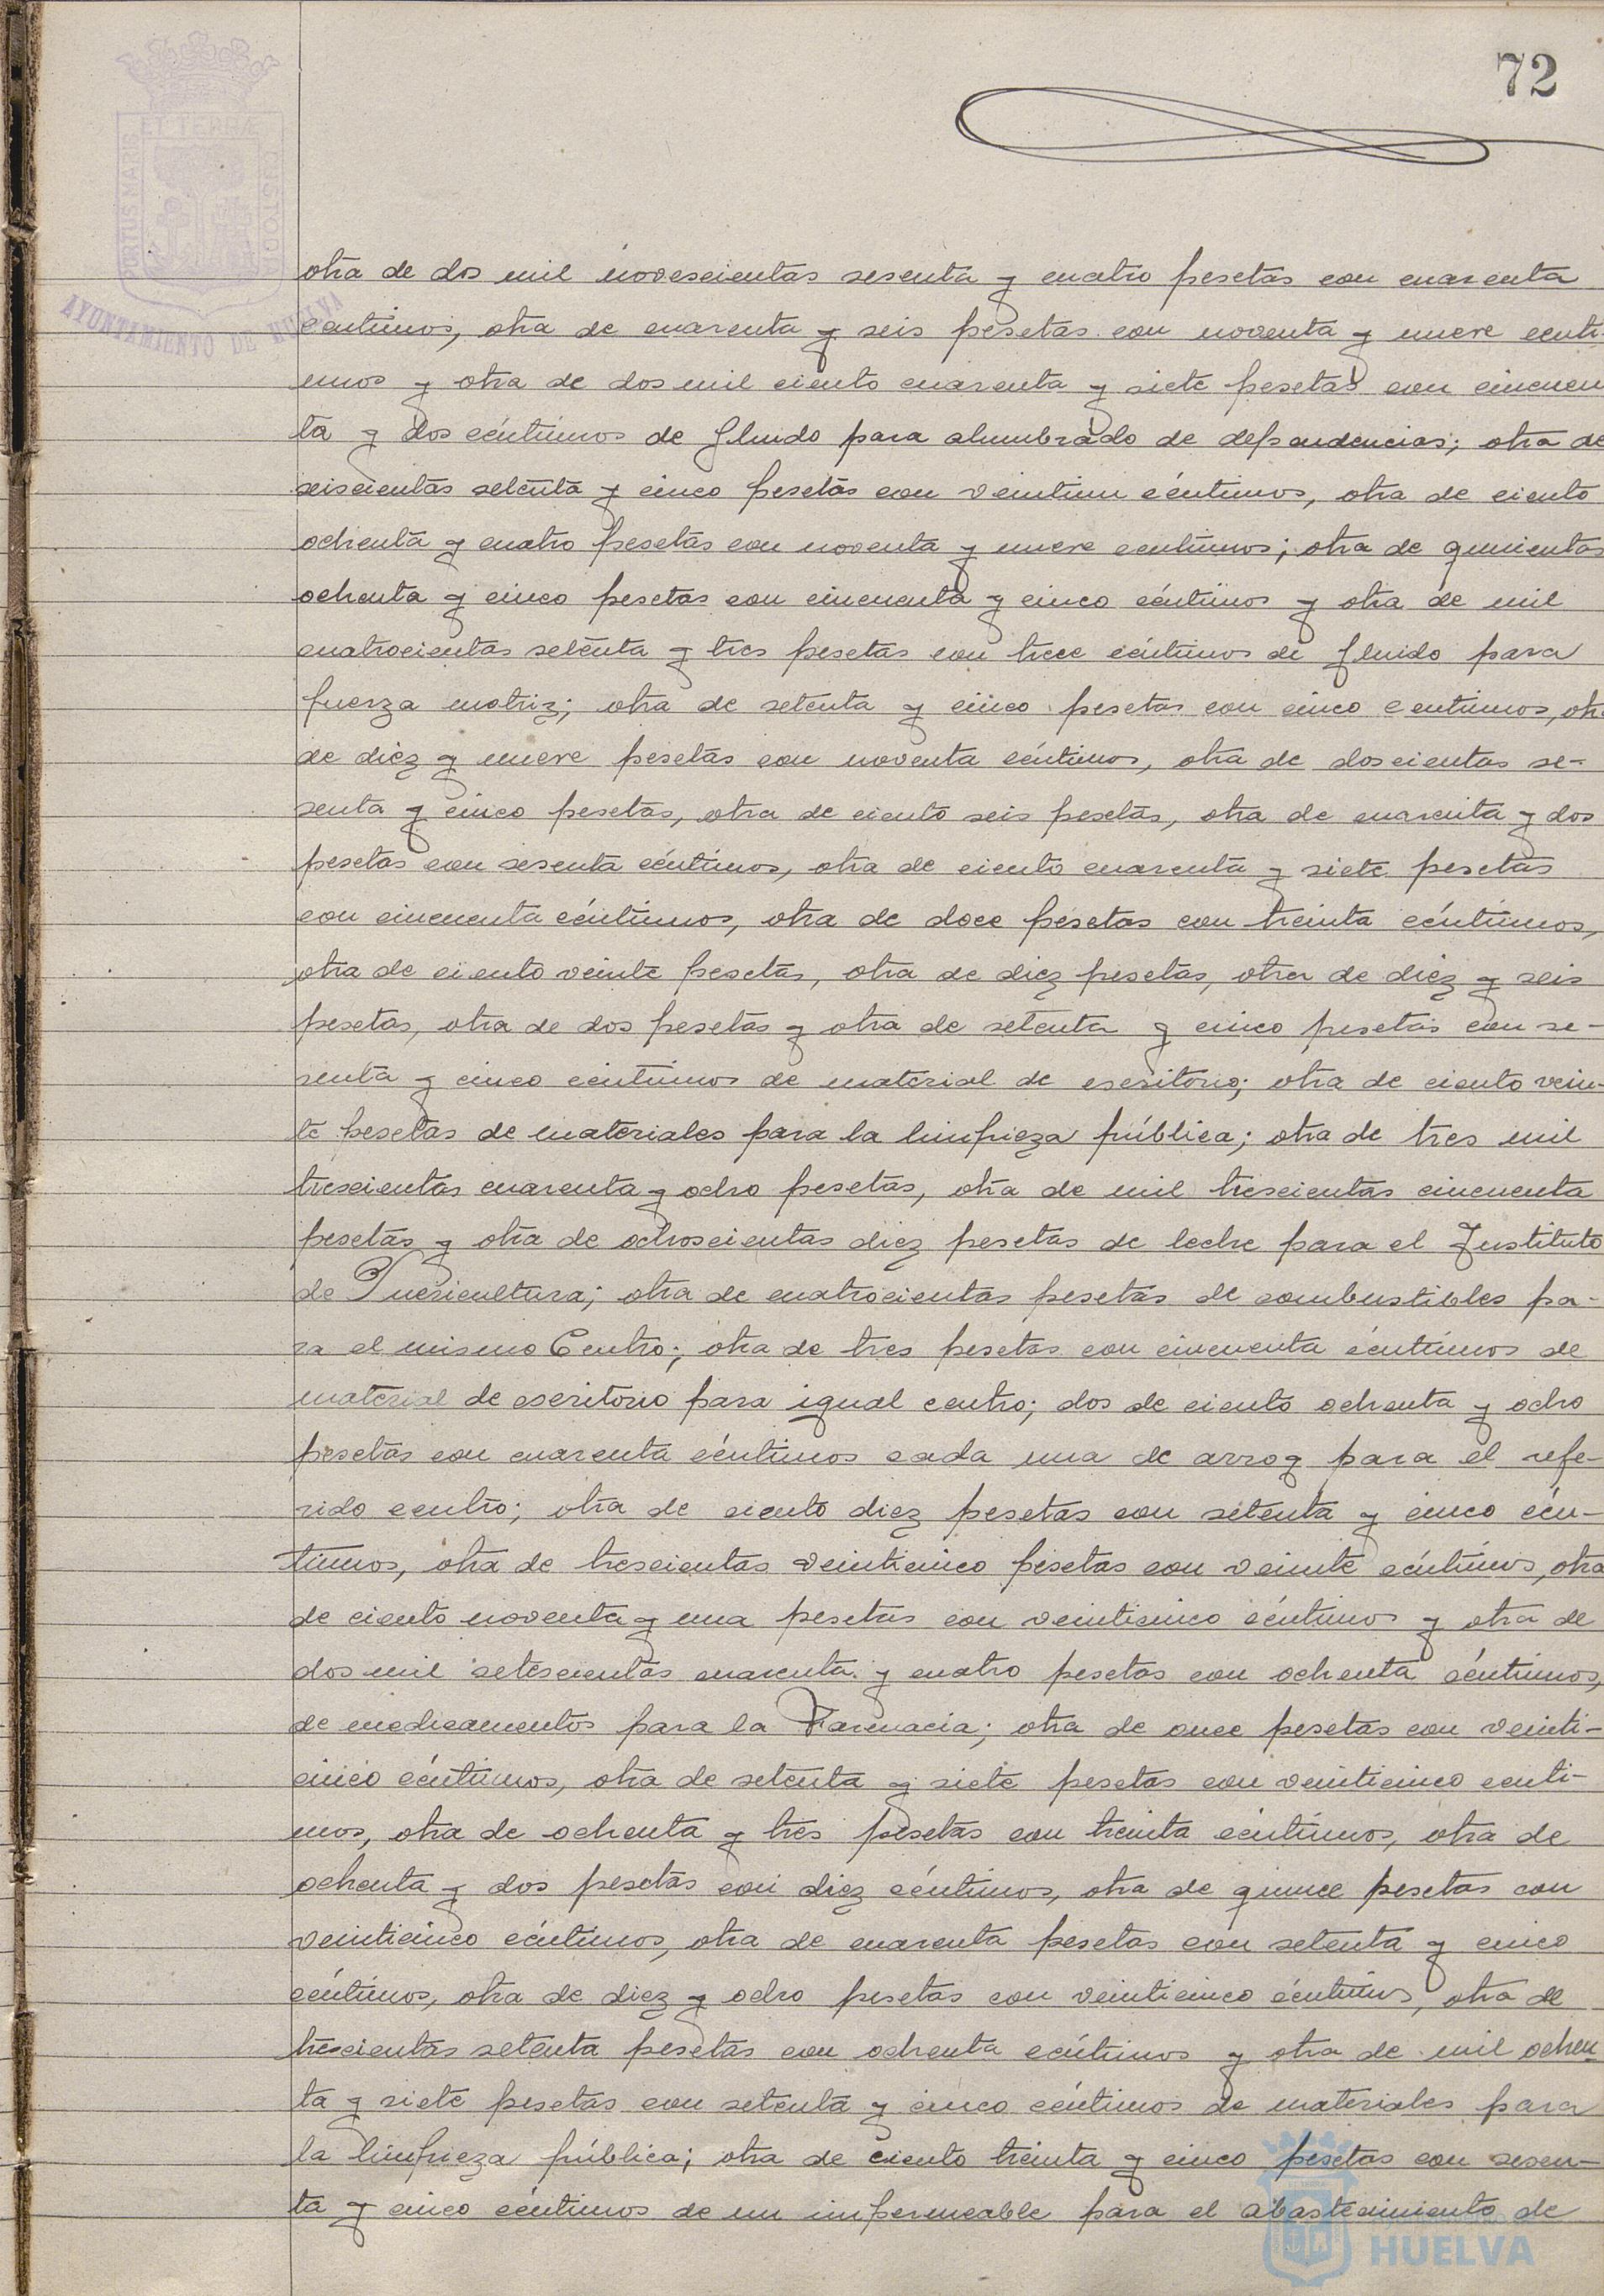 72
PORTUS MARIS
ET TERRÆ
CUSTODIA
AYUNTAMIENTO DE HUELVA
otra de dos mil novescientas sesenta y cuatro pesetas con cuarenta
centimos, otra de cuarenta y seis pesetas con noventa y nueve centi-
mos y otra de dos mil ciento cuarenta y siete pesetas con cincuen
ta y dos céntimos de fluido para alumbrado de dependencias; otra de
seiscientas setenta y cinco pesetas con veintiun céntimos, otra de ciento
ochenta y cuatro pesetas con noventa y nueve centimos; otra de quinientas
ochenta y cinco pesetas con cincuenta y cinco céntimos y otra de mil
cuatrocientas setenta y tres pesetas con trece céntimos de fluido para
fuerza motriz; otra de setenta y cinco pesetas con cinco centimos, otra
de diez y nueve pesetas con noventa céntimos, otra de doscientas se-
senta y cinco pesetas, otra de ciento seis pesetas, otra de cuarenta y dos
pesetas con sesenta céntimos, otra de ciento cuarenta y siete pesetas
con cincuenta céntimos, otra de doce pesetas con treinta céntimos,
otra de ciento veinte pesetas, otra de diez pesetas, otra de diez y seis
pesetas, otra de dos pesetas y otra de setenta y cinco pesetas con se-
senta y cinco centimos de material de escritorio; otra de ciento vein-
te pesetas de materiales para la limpieza pública; otra de tres mil
trescientas cuarenta y ocho pesetas, otra de mil trescientas cincuenta
pesetas y otra de ochoscientas diez pesetas de leche para el Instituto
de Puericultura; otra de cuatrocientas pesetas de combustibles pa-
ra el mismo Centro; otra de tres pesetas con cincuenta céntimos de
material de escritorio para igual centro; dos de ciento ochenta y ocho
pesetas con cuarenta céntimos cada una de arroz para el refe-
rido centro; otra de ciento diez pesetas con setenta y cinco cén-
timos, otra de trescientas veinticinco pesetas con veinte céntimos, otra
de ciento noventa y una pesetas con veinticinco céntimos y otra de
dos mil setescientas cuarenta y cuatro pesetas con ochenta céntimos,
de medicamentos para la Farmacia; otra de once pesetas con veinti-
cinco céntimos, otra de setenta y siete pesetas con veinticinco centi-
mos, otra de ochenta y tres pesetas con treinta céntimos, otra de
ochenta y dos pesetas con diez céntimos, otra de quince pesetas con
veinticinco céntimos, otra de cuarenta pesetas con setenta y cinco
céntimos, otra de diez y ocho pesetas con veinticinco céntimos, otra de
trescientas setenta pesetas con ochenta céntimos y otra de mil ochen
ta y siete pesetas con setenta y cinco céntimos de materiales para
la limpieza pública; otra de ciento treinta y cinco pesetas con sesen-
ta y cinco céntimos de un impermeable para el abastecimiento de
HUELVA